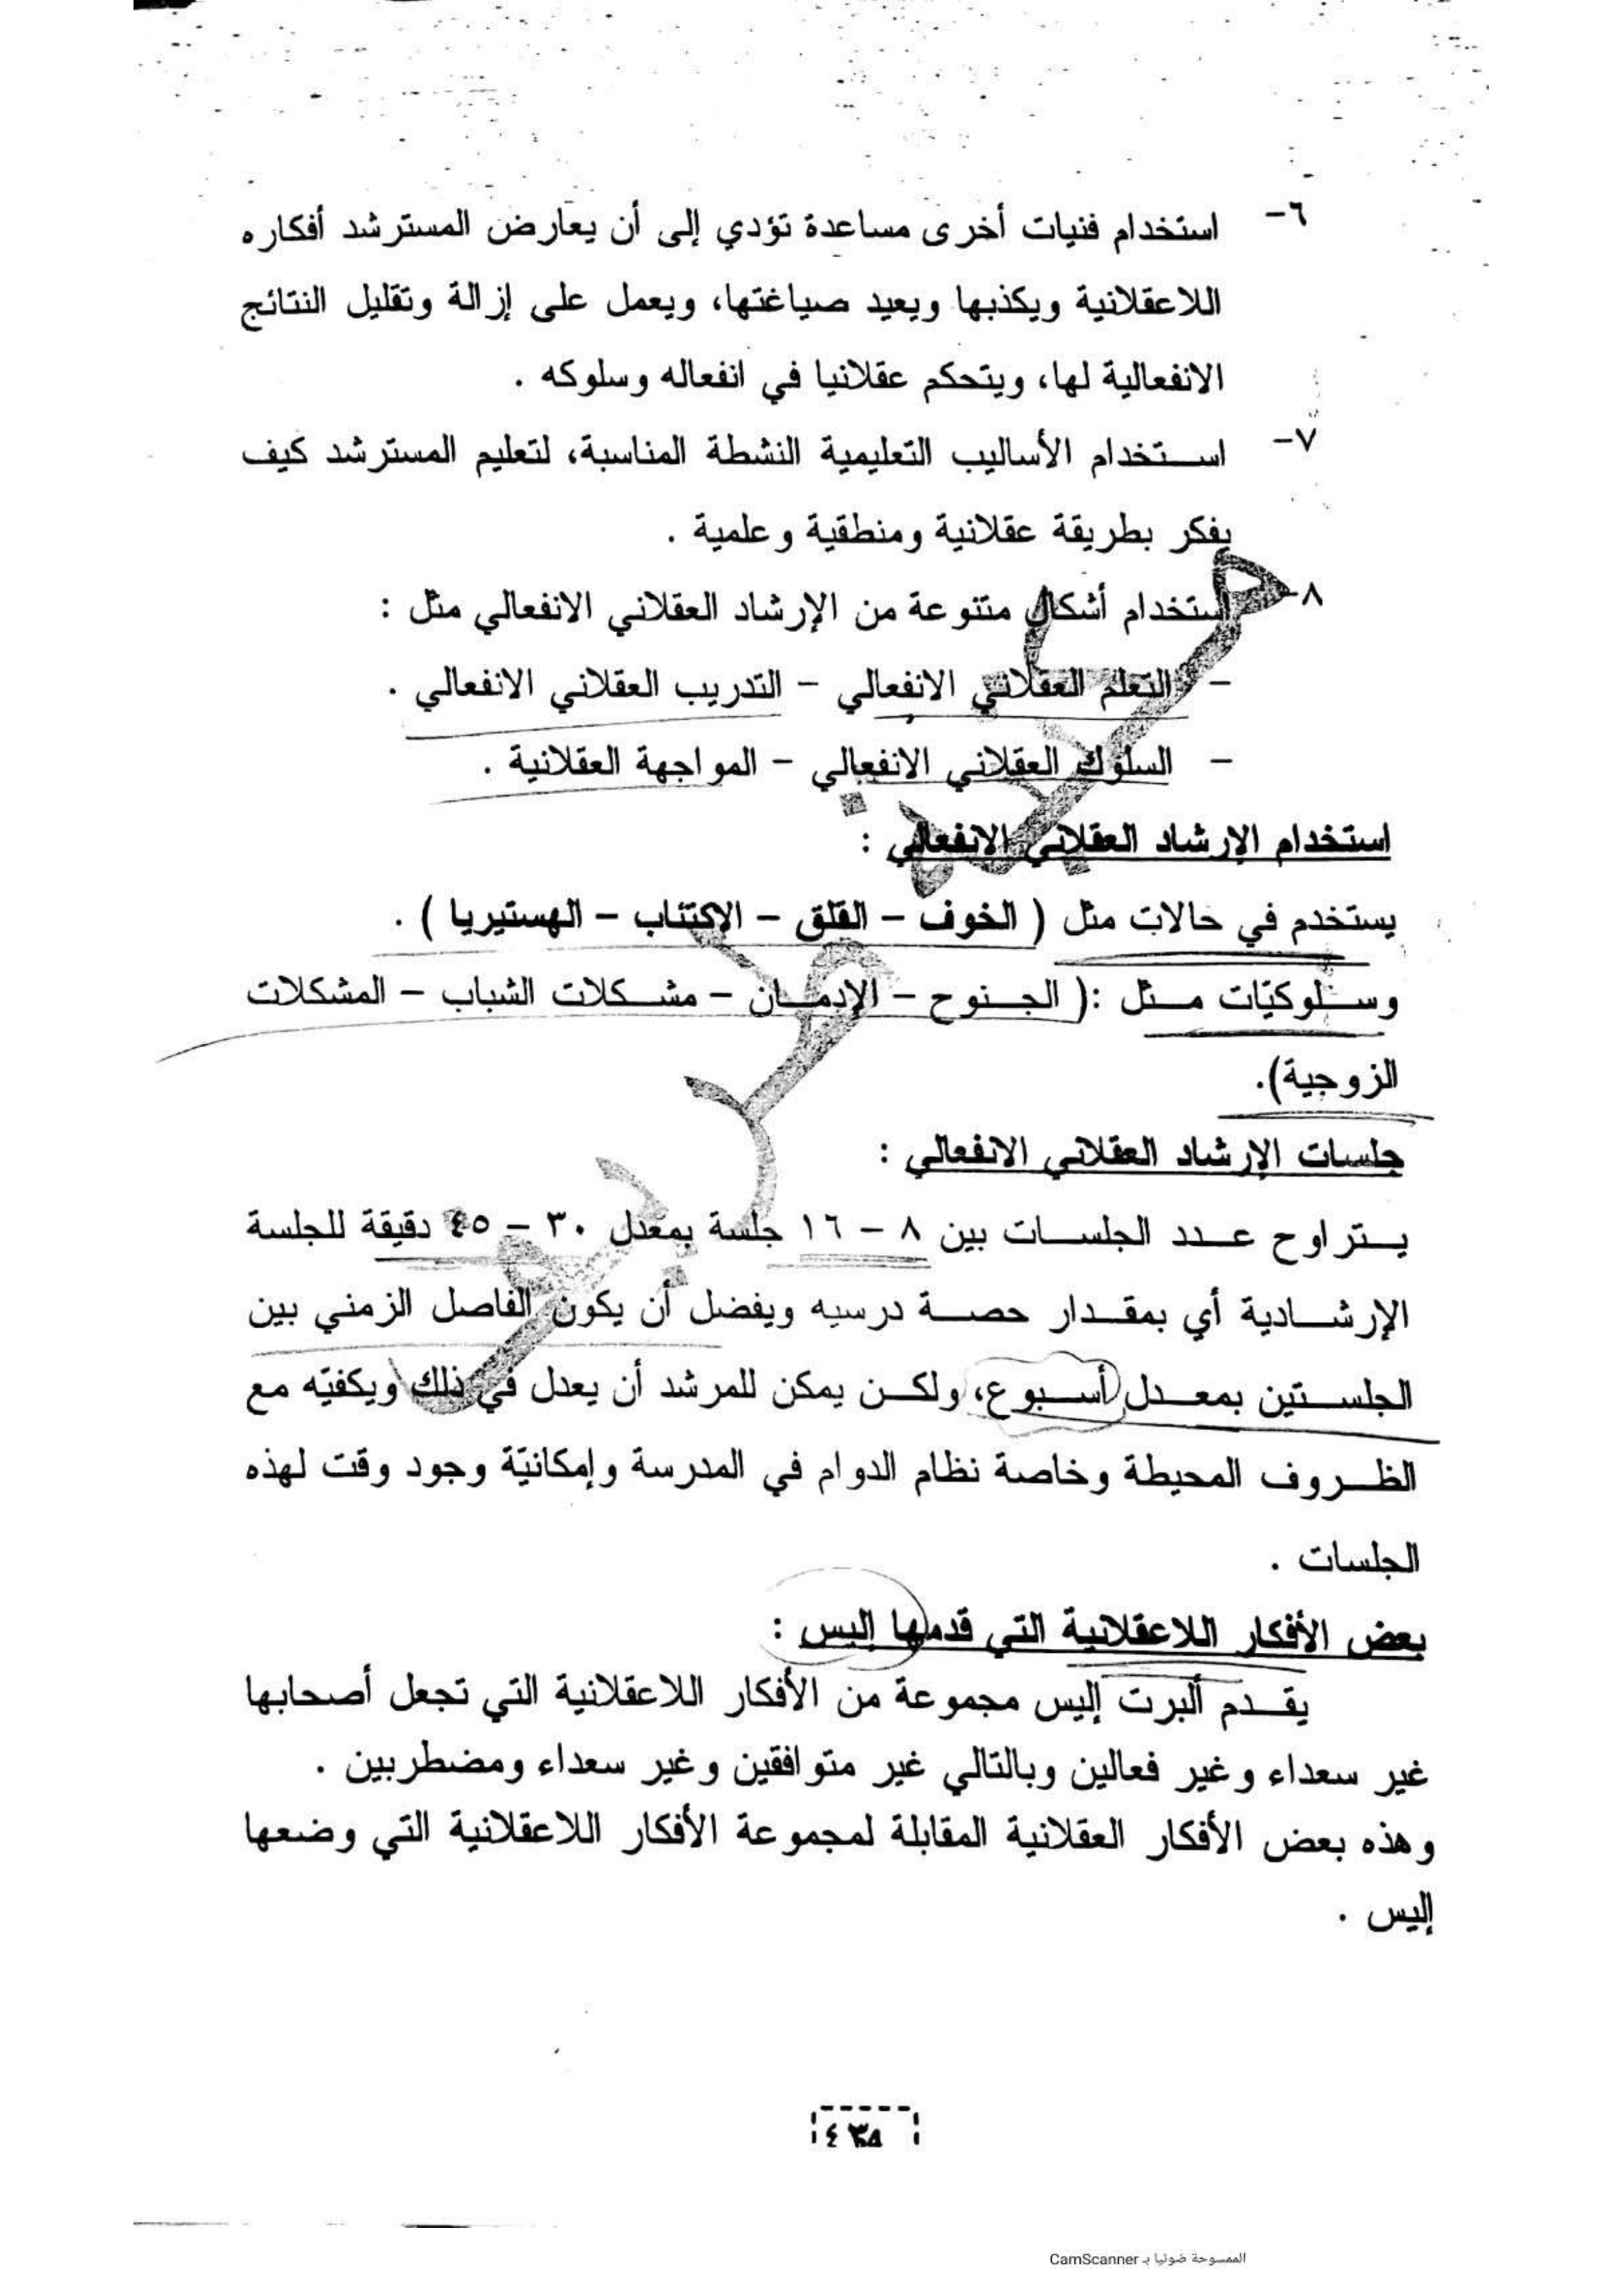 ٦- استخدام فنيات أخرى مساعدة تؤدي إلى أن يعارض المسترشد أفكاره
اللاعقلانية ويكذبها ويعيد صياغتها، ويعمل على إزالة وتقليل النتائج
الانفعالية لها، ويتحكم عقلانيا في انفعاله وسلوكه .
٧- استخدام الأساليب التعليمية النشطة المناسبة، لتعليم المسترشد كيف
يفكر بطريقة عقلانية ومنطقية وعلمية .
٨- استخدام أشكال متنوعة من الإرشاد العقلاني الانفعالي مثل :
- التعلم العقلاني الانفعالي - التدريب العقلاني الانفعالي .
- السلوك العقلاني الانفعالي - المواجهة العقلانية .
استخدام الإرشاد العقلاني الانفعالي :
يستخدم في حالات مثل ( الخوف - القلق - الاكتئاب - الهستيريا ) .
وسلوكيّات مثل :( الجنوح - الإدمان - مشكلات الشباب - المشكلات
الزوجية).
جلسات الإرشاد العقلاني الانفعالي :
يتراوح عدد الجلسات بين ٨ - ١٦ جلسة بمعدل ٣٠ - ٤٥ دقيقة للجلسة
الإرشادية أي بمقدار حصة درسيه ويفضل أن يكون الفاصل الزمني بين
الجلستين بمعدل أسبوع، ولكن يمكن للمرشد أن يعدل في ذلك ويكفيّه مع
الظروف المحيطة وخاصة نظام الدوام في المدرسة وإمكانيّة وجود وقت لهذه
الجلسات .
بعض الأفكار اللاعقلانية التي قدمها إليس :
يقدم ألبرت إليس مجموعة من الأفكار اللاعقلانية التي تجعل أصحابها
غير سعداء وغير فعالين وبالتالي غير متوافقين وغير سعداء ومضطربين .
وهذه بعض الأفكار العقلانية المقابلة لمجموعة الأفكار اللاعقلانية التي وضعها
إليس .
الممسوحة ضوئيا بـ CamScanner